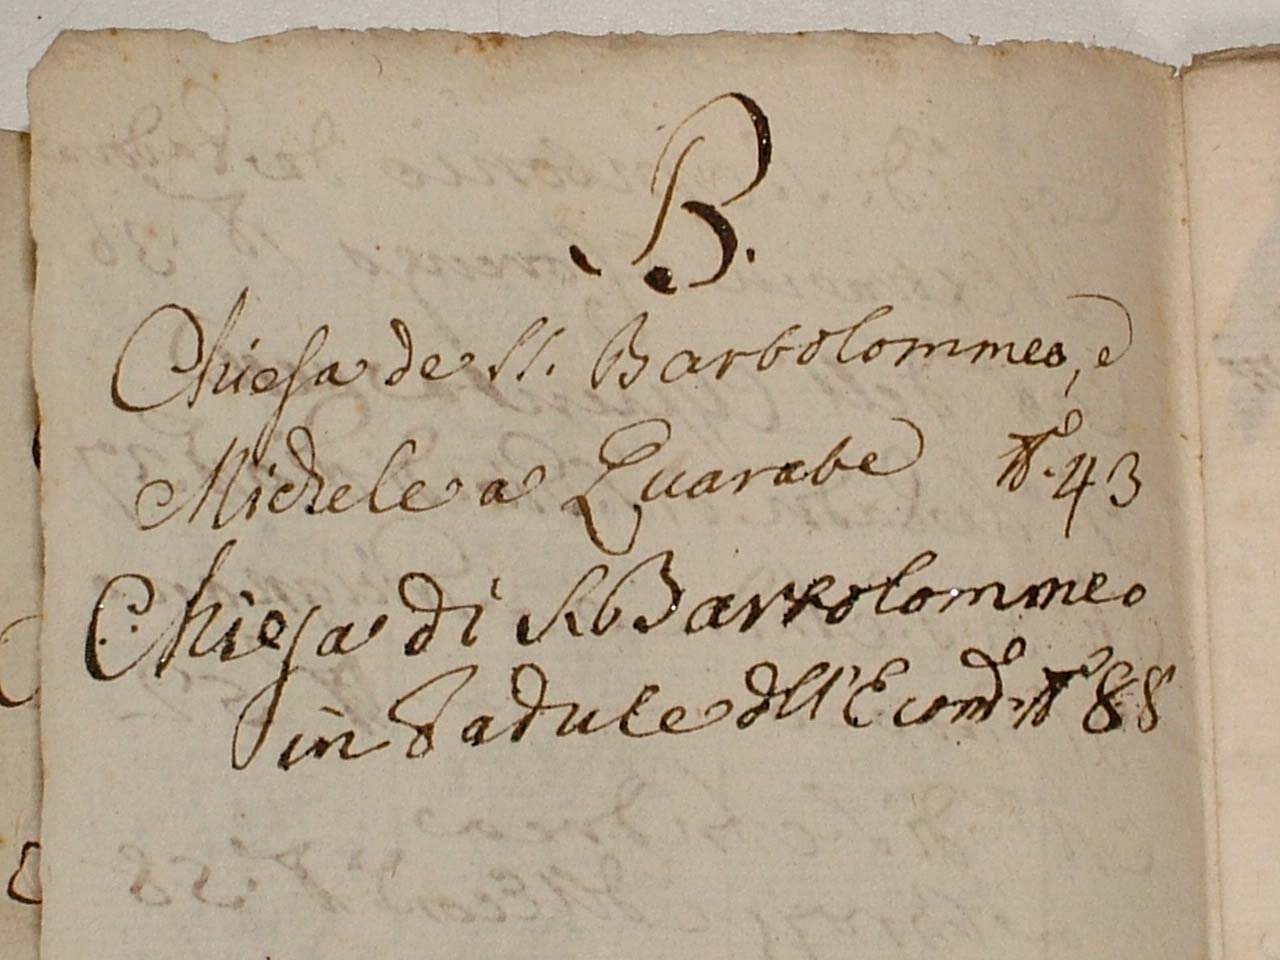 B.
Chiesa de SS. Bartolommeo, e
Michele a Quarabe N.º 43
Chiesa di S. Bartolommeo
in Padule dell' Econd. N.º 88